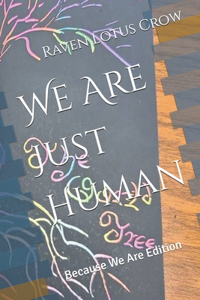 Raven Lotus Crow
We Are
Just
Human
Tree
Because We Are Edition